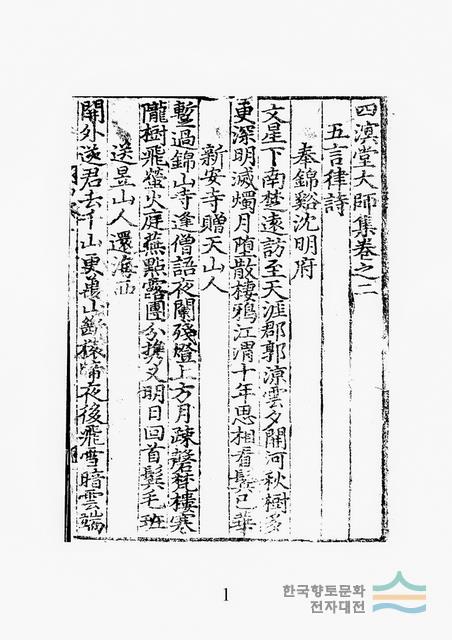 四溟堂大師集卷之二
五言律詩
奉錦谿沈明府
文星下南楚遠訪至天涯郡郭凉雲夕關河秋樹多
更深明滅燭月墮散棲鴉江渭十年思相看鬂已華
新安寺贈天山人
暫過錦山寺逢僧語夜闌殘燈上方月疎磬梵樓寒
隴樹飛螢火庭蕪點露團分携又明日回首鬂毛班
送昱山人還海西
關外送君去千山更萬山 夜後飛雪暗雲端
1
한국향토문화
전자대전